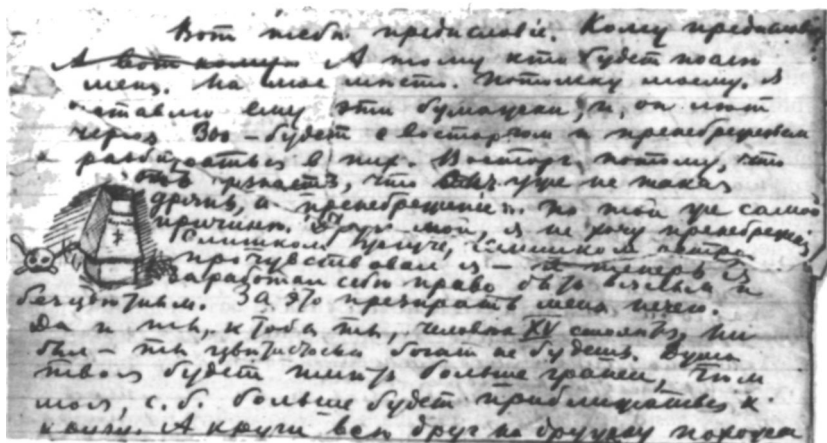 Вот тебѣ предисловіе. Кому предисловіе
А вот кому. А тому кто будет послѣ
меня. На мое мѣсто. Потомку моему. Я
оставлю ему эти бумажки, и, он лѣт
через 300 – будет с восторгом и пренебрежением
разбираться в них. Восторг потому, что
он узнает, что уже не такая
дрянь, а пренебреженіе по той уже самой
причинѣ. Друг мой, я не хочу пренебреженія
Слишком жгуче, слишком
прочувствовал я – и теперь я
заработал себѣ право быть вялым и
безцвѣтным. За это презирать меня нечего.
Да и ты, кто бы ты, человѣк XV столѣтія, ни
был – ты цвѣтистостью богат не будешь. Душа
твоя будет имѣть больше граней, чѣм
моя, с. б. больше будет приближаться к
А круги всѣ друг на дружку похожи